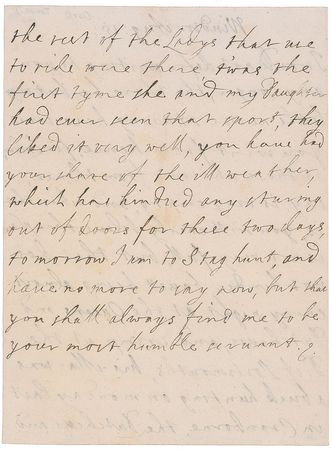 the rest of the Ladys that use
to ride were there twas the
first tyme she and my Daughter
had ever seen that sport, they
liked it very well, you have had
your share of the ill weather,
which has hindred any sturing
out of doors for these two days
to morrow I am to Stag hunt, and
have no more to say now, but that
you shall always find me to be
your most humble servant.